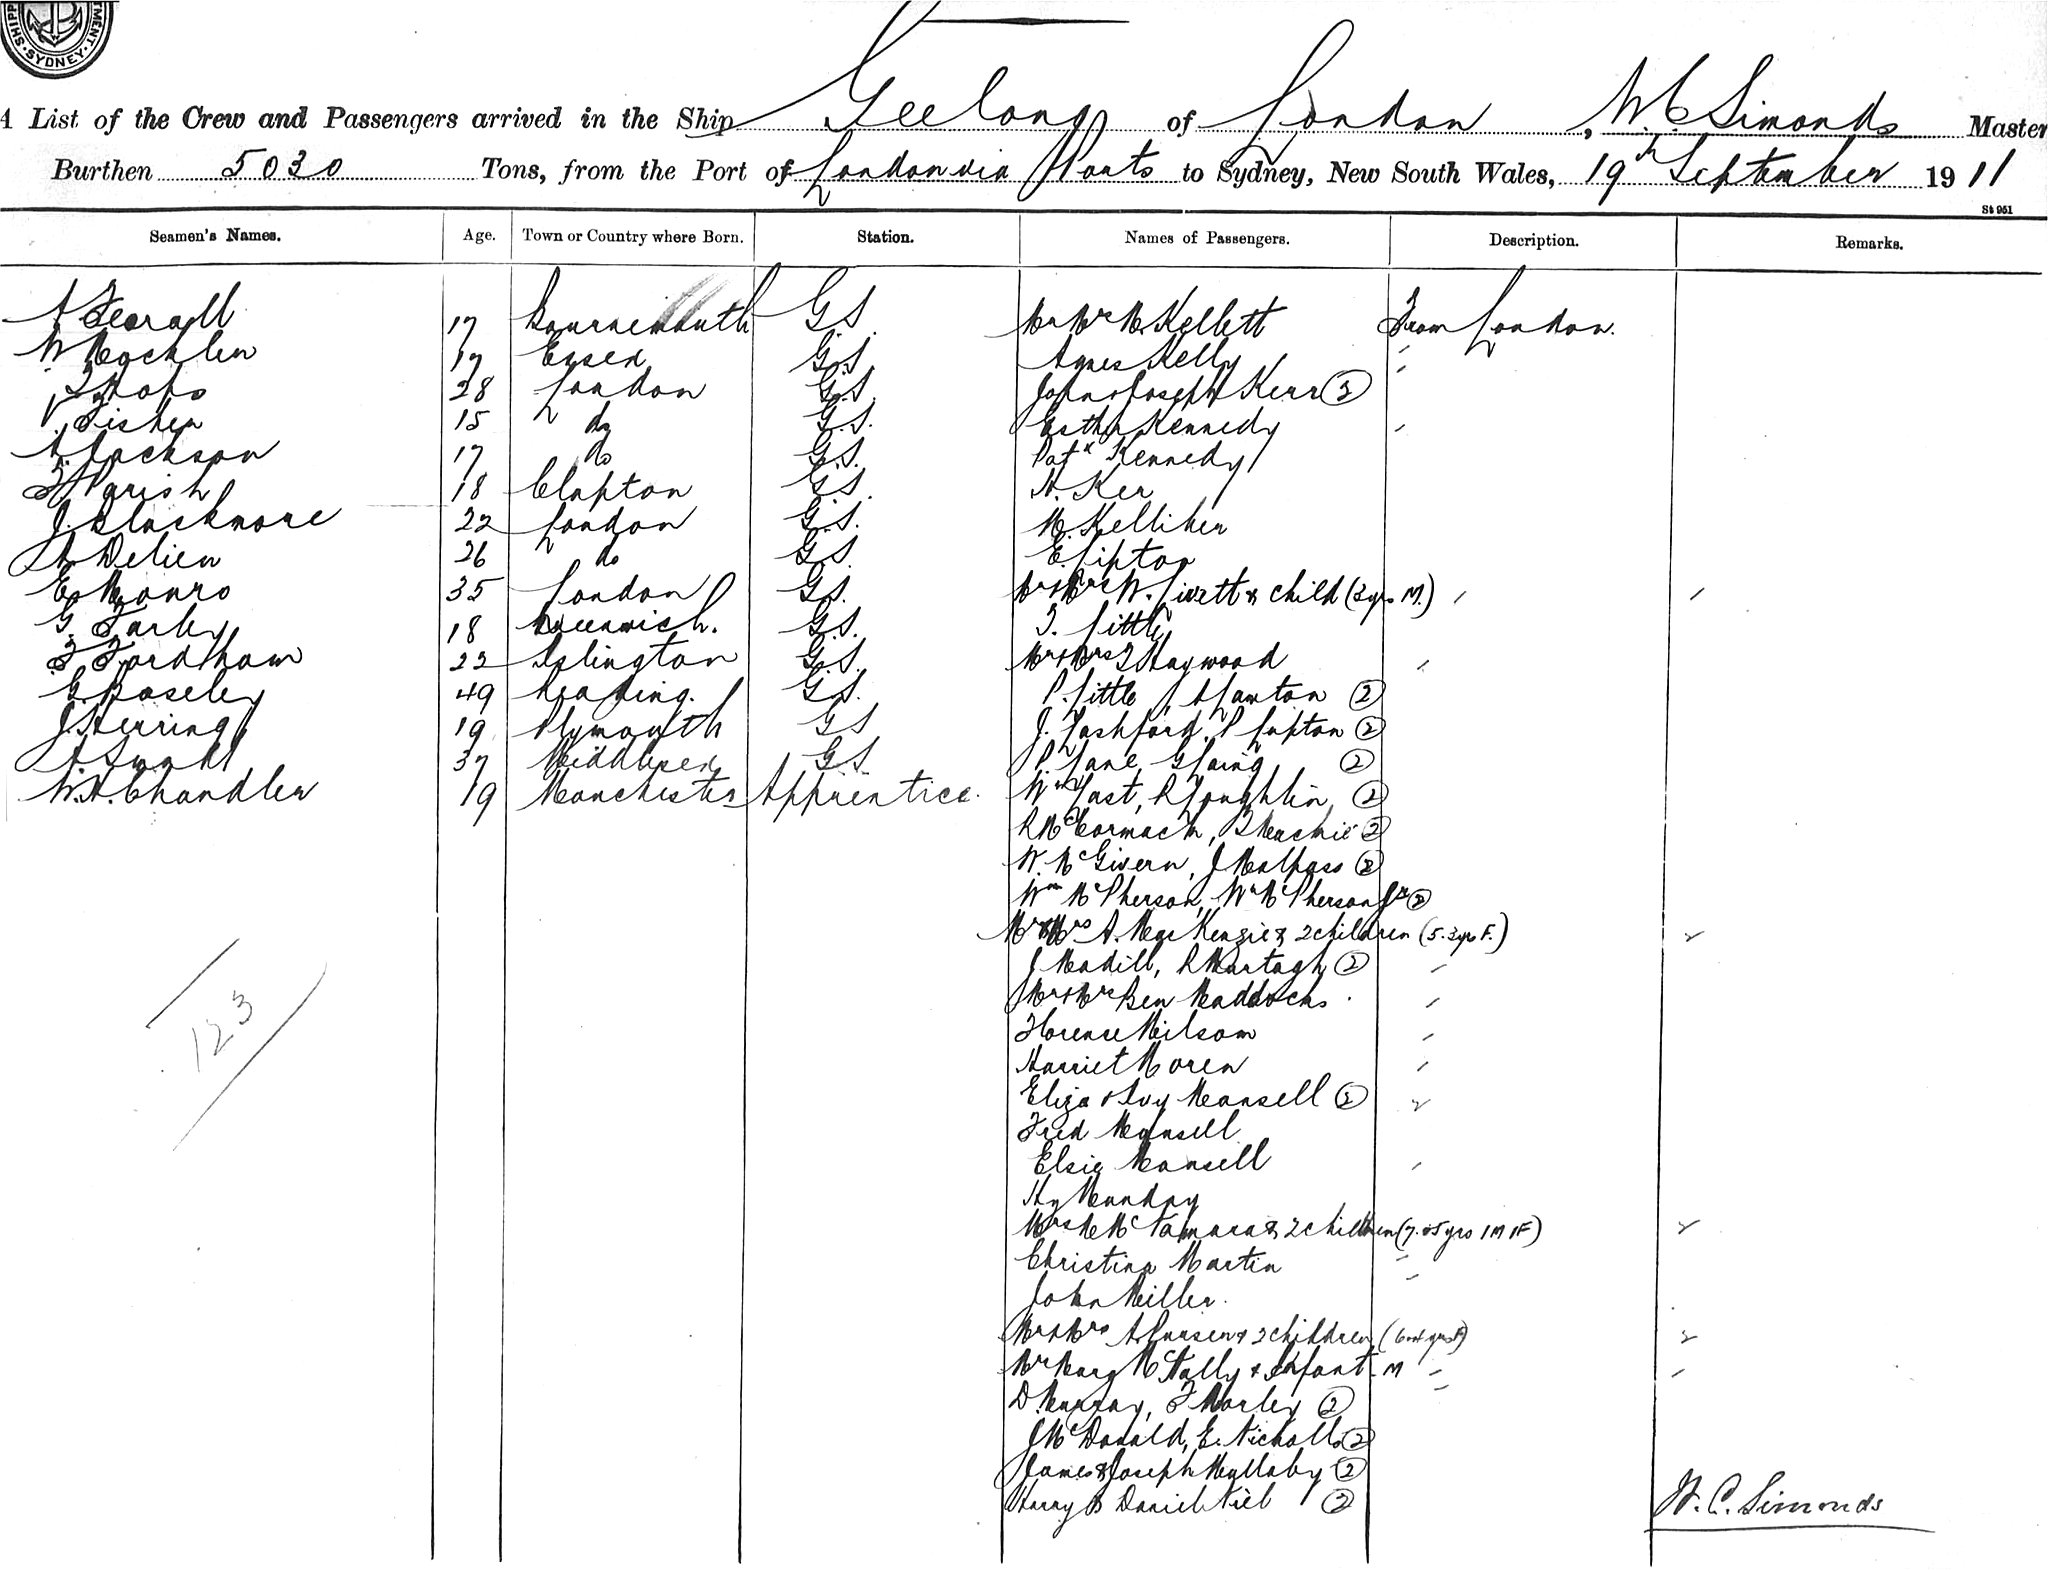 SHIPP · SYDNEY · TMENT
A List of the Crew and Passengers arrived in the Ship Geelong of London, W C Simonds Master
Burthen 5030 Tons, from the Port of London via Ports to Sydney, New South Wales, 19th September 1911
St 951
Seamen's Names. Age. Town or Country where Born. Station. Names of Passengers. Description. Remarks.
17 Bournemouth G.S. Kellett From London.
17 Essex G.S. Agnes Kelly "
28 London G.S. John & Joseph Kerr (2)
Fisher 15 do G.S. Esther Kennedy "
A Jackson 17 do G.S. Patk Kennedy
F Parish 18 Clapton G.S. H. Ker
J. Blackmore 22 London G.S. M. Kelliher
A Delien 26 do G.S. E. Lipton
E. Monro 35 London G.S. Mr & Mrs W. Livett & child (3 yrs M.) "
G. Farley 18 Greenwich. G.S. T. Little
F Fordham 22 Islington G.S. Mr & Mrs T Haywood "
G. Boseley 49 Reading. G.S. P. Little, Lawton (2)
J Herring 19 Plymouth G.S. J. Lashford, P Lupton (2)
37 Middlesex G.S. P. Lane, G Laing (2)
W.A. Chandler 19 Manchester Apprentice. Wm Last, R Loughlin, (2)
R McCormack, (2)
W. McGivern, J Malpass (2)
Wm McPherson, Wm McPherson Jr (2)
Mr & Mrs A. MacKenzie & 2 children (5. 3 yrs F.) 2
J Madill, R Murtagh (2)
Mr & Mrs Ben Maddocks
Florence Milsom
Harriet Moren
Eliza & Ivy Mansell (2) 2
Fred Mansell
Elsie Mansell
Hy Munday
McNamara & 2 children (7. & 5 yrs 1M 1F) 2
Christina Martin
John Miller.
Mr & Mrs A. Pursen & 2 children 2
McNally & Infant. M
D. Murray, F Morley (2)
J McDonald, E. Nicholls (2)
James & Joseph Mullaby (2)
Harry & Daniel Niel (2)
123
W. C. Simonds